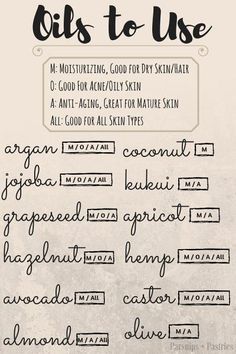 Oils to Use
M: Moisturizing, Good for Dry Skin/Hair
O: Good For Acne/Oily Skin
A: Anti-Aging, Great for Mature Skin
All: Good for All Skin Types
argan M / O / A / All
coconut M
jojoba M / O / A / All
kukui M / A
grapeseed M / O / A
apricot M / A
hazelnut M / O / A
hemp M / O / A / All
avocado M / A / All
castor M / O / A / All
almond M / A / All
olive M / A
Parsnips + Pastries